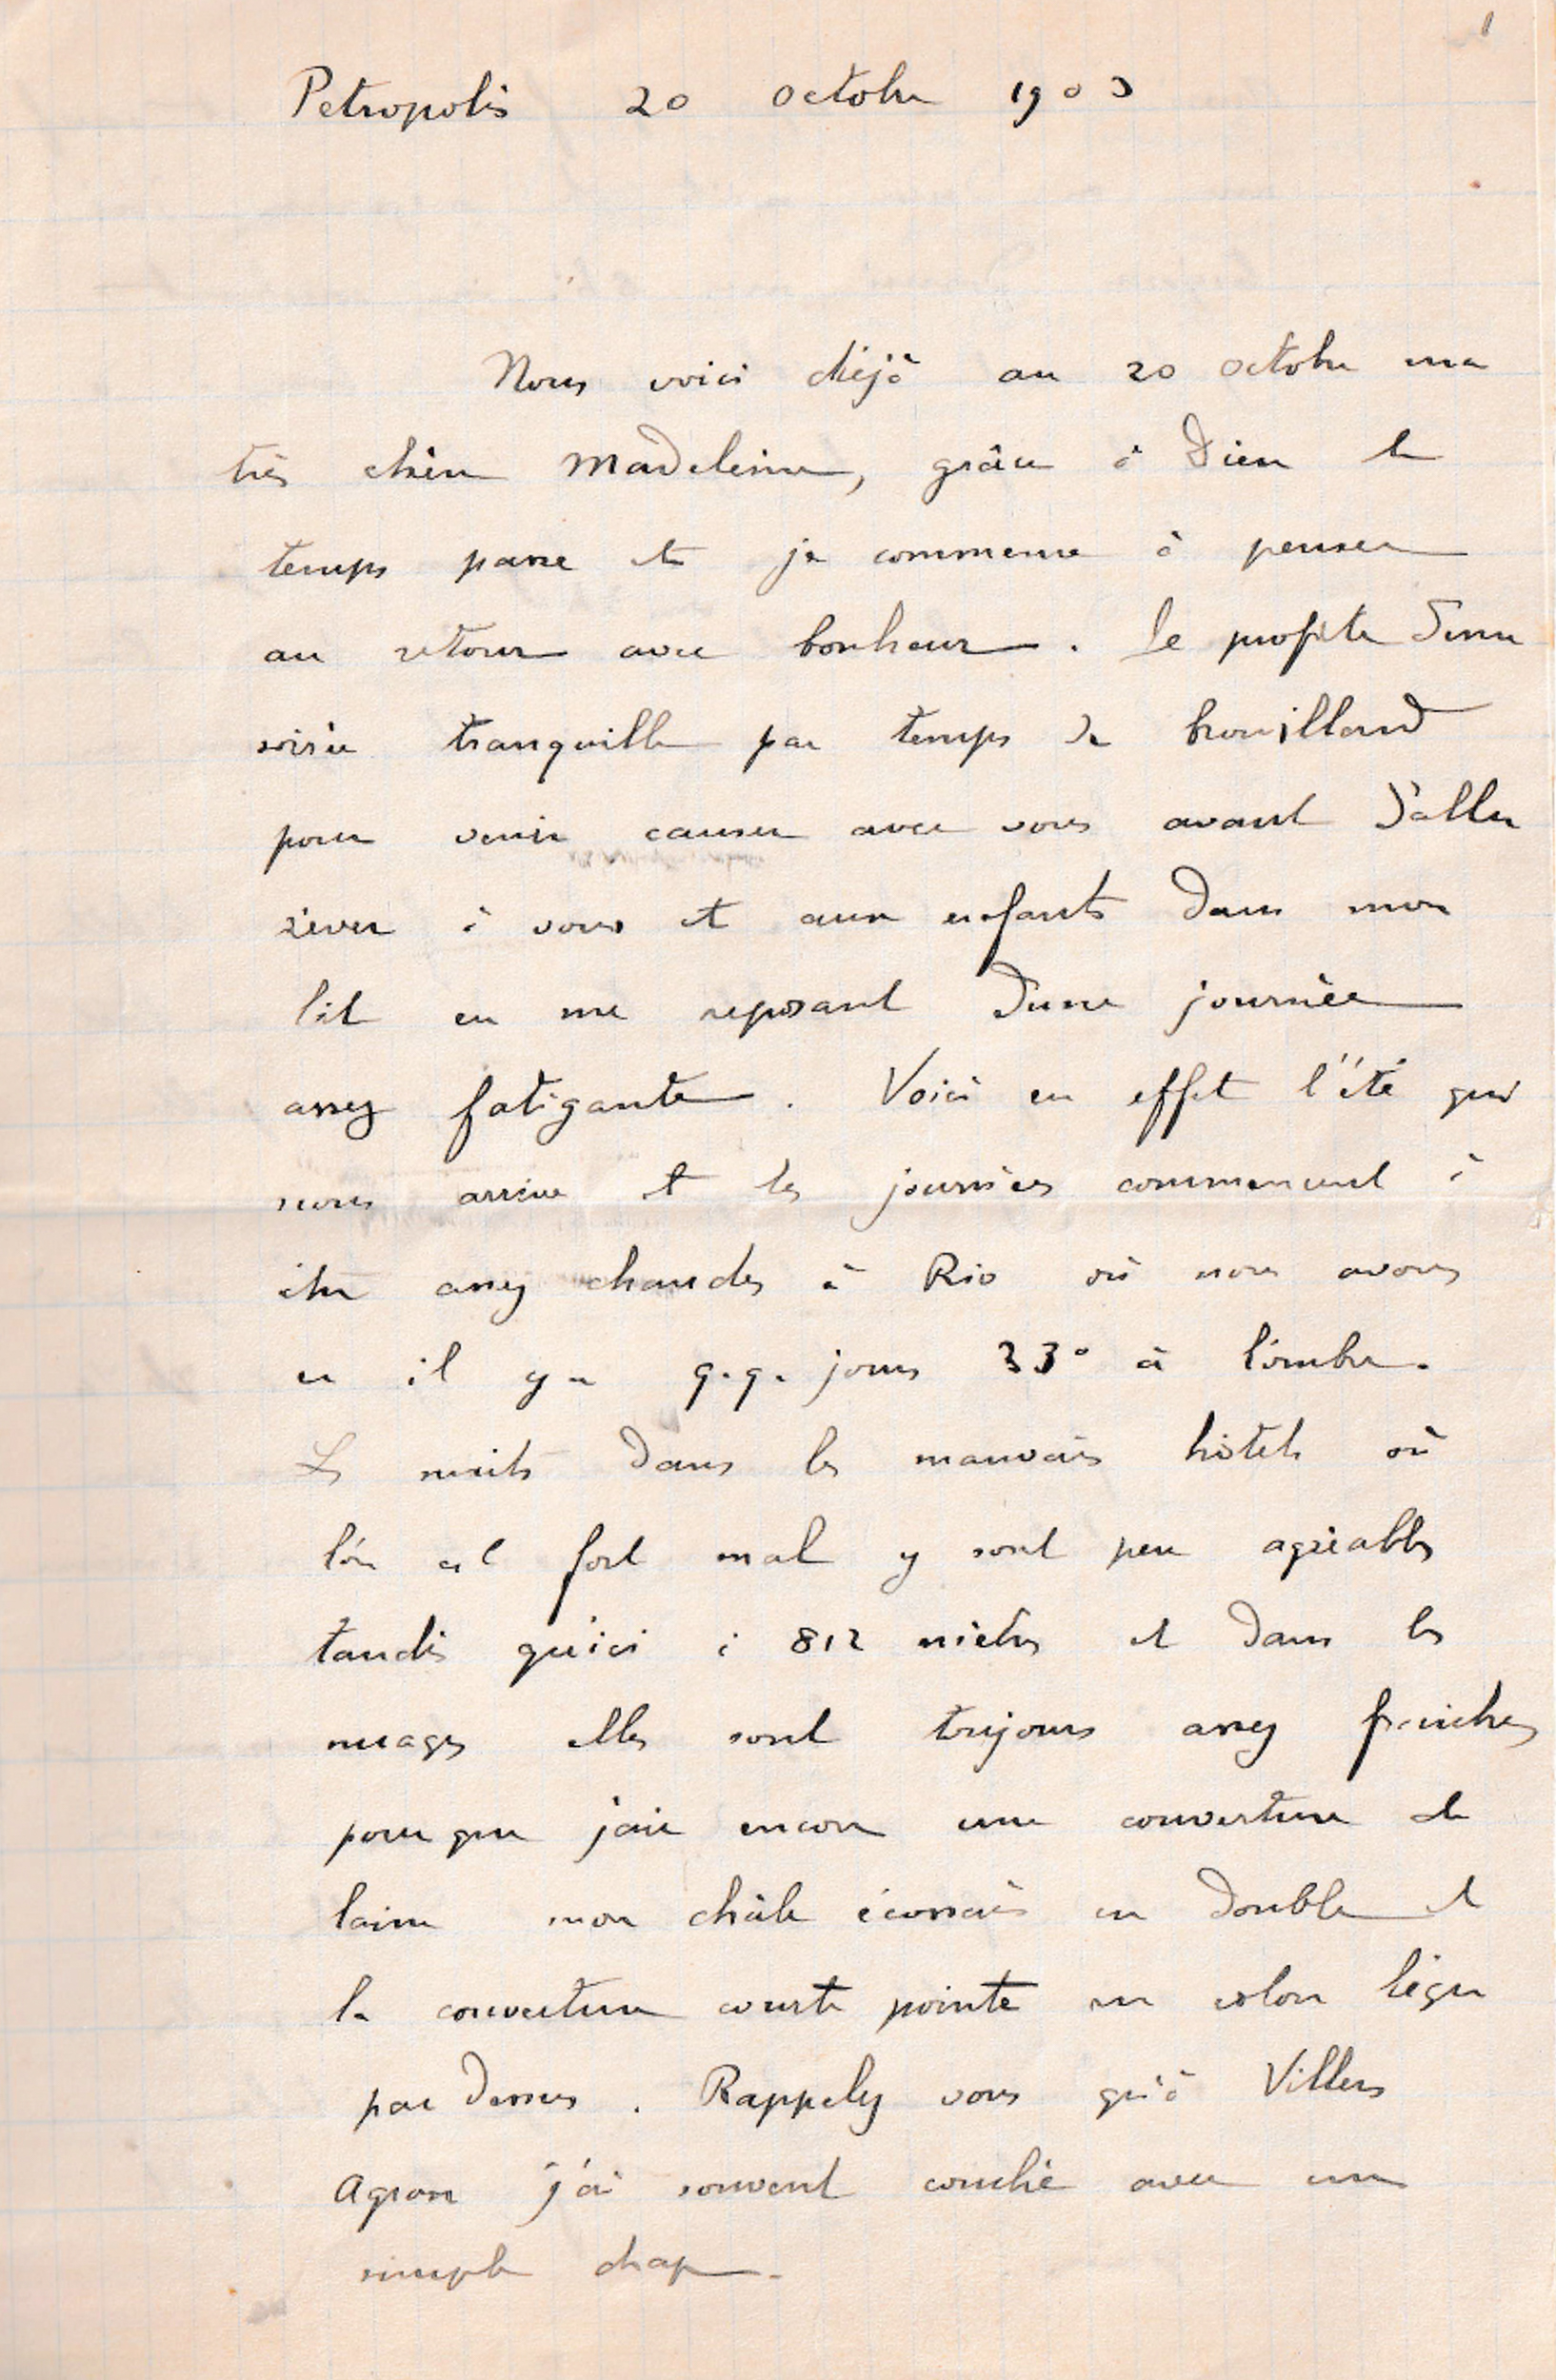 Petropolis 20 octobre 1903
Nous voici déjà au 20 octobre ma
très chère Madeleine, grâce à Dieu le
temps passe et je commence à penser
au retour avec bonheur. Je profite d'une
soirée tranquille par temps de brouillard
pour venir causer avec vous avant d'aller
rêver à vous et aux enfants dans mon
lit en me reposant d'une journée
assez fatigante. Voici en effet l'été qui
nous arrive et les journées commencent à
être assez chaudes à Rio où nous avons
eu il y a q.q. jours 33° à l'ombre.
Les nuits dans les mauvais hôtels où
l'on est fort mal y sont peu agréables
tandis qu'ici à 812 mètres et dans les
nuages elles sont toujours assez fraîches
pour que j'aie encore une couverture de
laine mon châle écossais en double et
la couverture courte pointe en coton léger
par dessus. Rappelez vous qu'à Villers
Agron j'ai souvent couché avec un
simple drap.